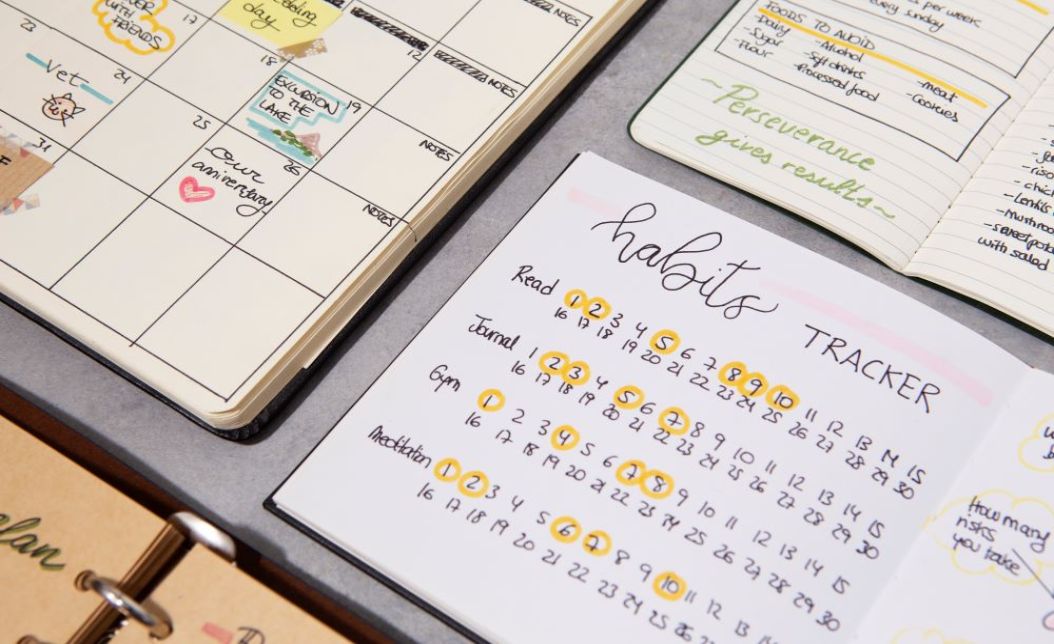 17
WITH
FRIENDS
day
NOTES
23
Vet
24
18
EXCURSION
TO THE
LAKE
19
12
NOTES
31
25
Our
aniversary
26
NOTES
NOTES
plan
per week
every Sunday
FOODS TO AVOID
-Dairy -Alcohol -meat
-Sugar -Soft drinks -Cookies
-Flour -Processed food
-Perseverance
gives results-
-Lentils
with salad
habits
TRACKER
Read 1 2 3 4 5 6 7 8 9 10 11 12 13 14 15
16 17 18 19 20 21 22 23 24 25 26 27 28 29 30
Journal 1 2 3 4 5 6 7 8 9 10 11 12 13 14 15
16 17 18 19 20 21 22 23 24 25 26 27 28 29 30
Gym 1 2 3 4 5 6 7 8 9 10 11 12 13 14 15
16 17 18 19 20 21 22 23 24 25 26 27 28 29 30
Meditation 1 2 3 4 5 6 7 8 9 10 11 12
16 17 18 19 20 21 22 23 24 25 26
How many
risks
you take